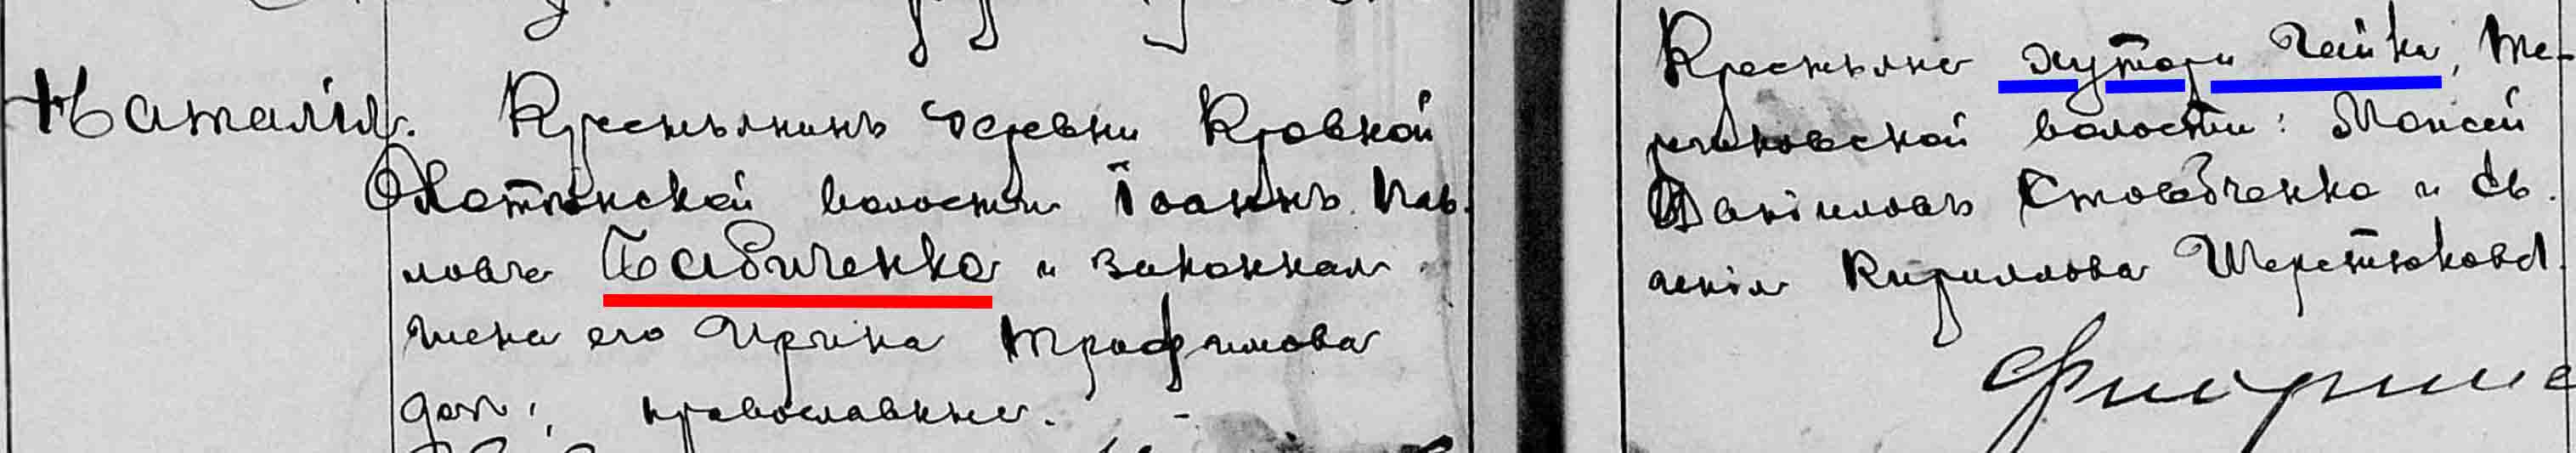 Наталія.
Крестьянинъ деревни Кровной
Хотѣнской волости Іоаннъ Пав-
ловъ Бабиченко и законная
жена его Ирина Трофимова
оба православные. -
Крестьяне хутора Чайки, Те-
решковской волости: Моисей
Даніиловъ Стовбченко и Ев-
генія Кириллова Шерстюкова